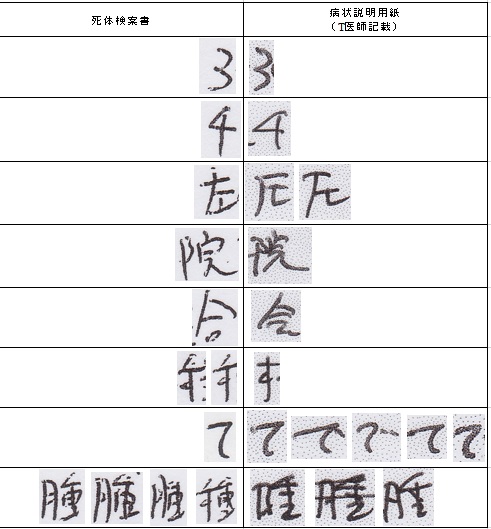 死体検案書 病状説明用紙
（T医師記載）
3 3
4 4
左 左 左
院 院
合 合
て て て て て て
腫 腫 腫 腫 腫 腫 腫